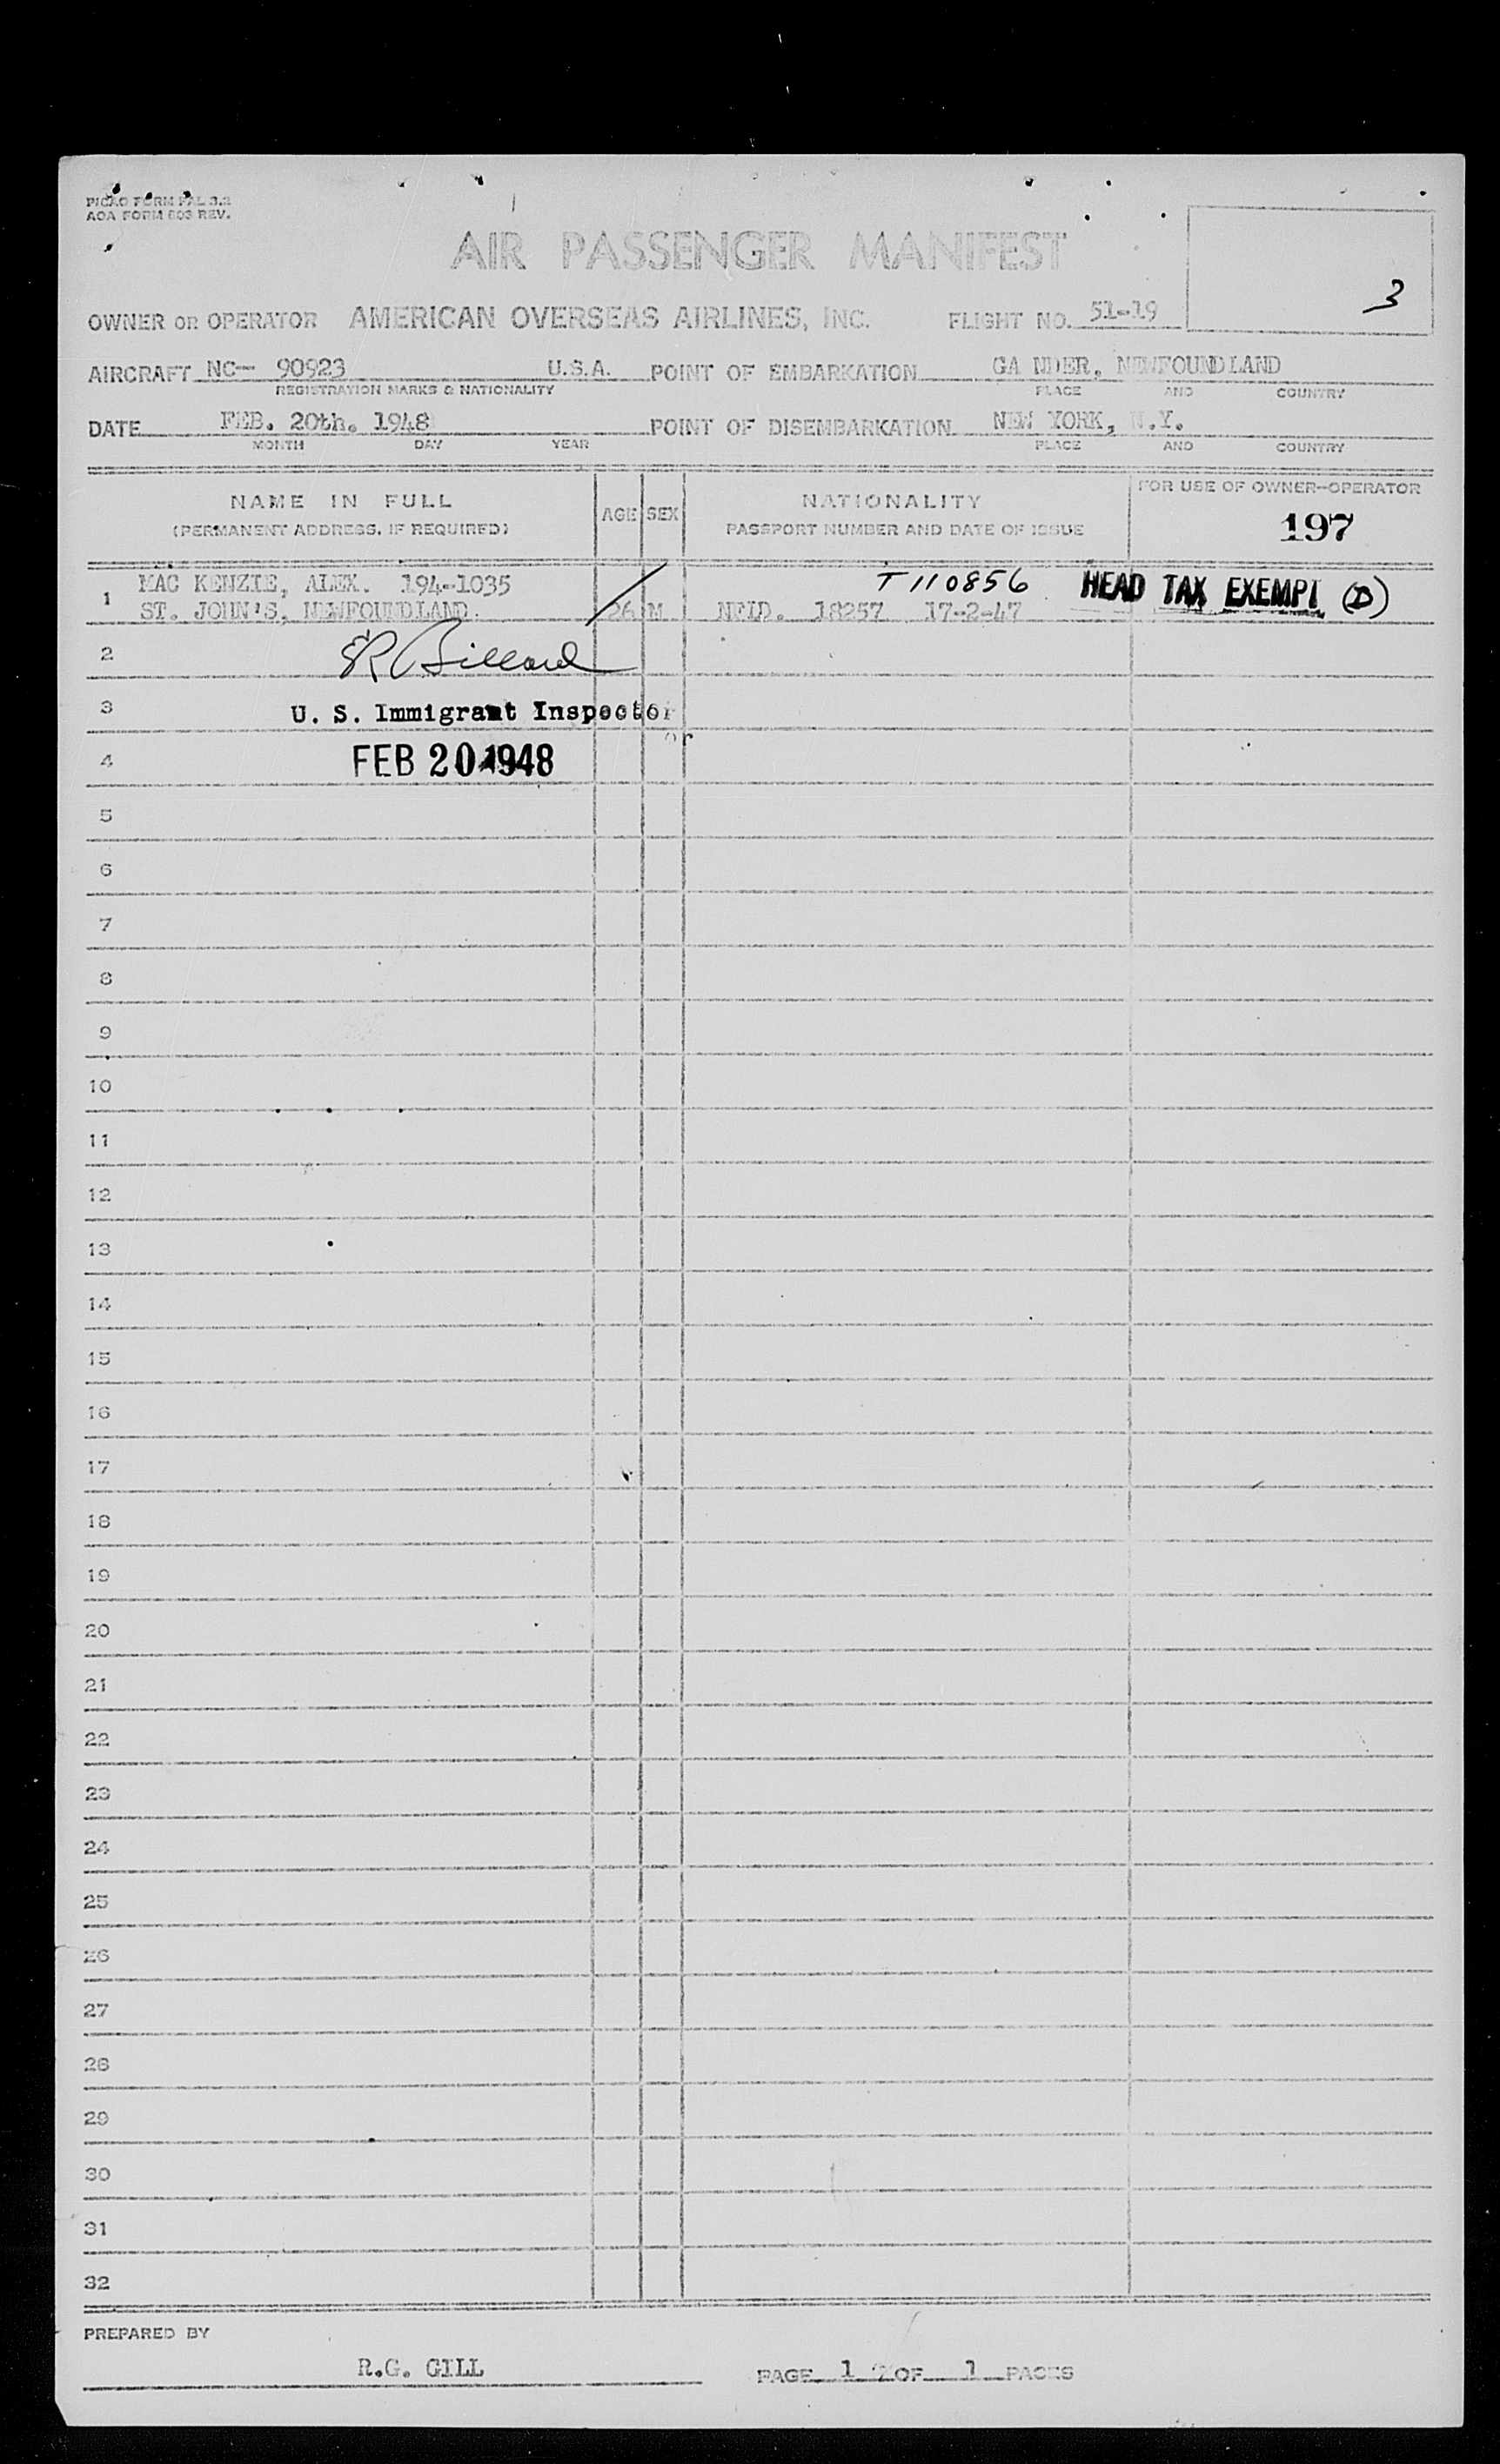 PICAO FORM FAL 3.2
AOA FORM 603 REV.
AIR PASSENGER MANIFEST
3
OWNER OR OPERATOR AMERICAN OVERSEAS AIRLINES, INC. FLIGHT NO. 51-19
AIRCRAFT NC- 90923 U.S.A. POINT OF EMBARKATION GA NDER, NEWFOUNDLAND
REGISTRATION MARKS & NATIONALITY PLACE AND COUNTRY
DATE FEB. 20th. 1948 POINT OF DISEMBARKATION NEW YORK, N.Y.
MONTH DAY YEAR PLACE AND COUNTRY
NAME IN FULL AGE SEX NATIONALITY FOR USE OF OWNER-OPERATOR
(PERMANENT ADDRESS, IF REQUIRED) PASSPORT NUMBER AND DATE OF ISSUE 197
1 MAC KENZIE, ALEX. 194-1035 T110856 HEAD TAX EXEMPT (D)
ST. JOHN'S, NEWFOUNDLAND. 26 M NFLD. 18257 17-2-47
2 Billard
3 U. S. Immigrant Inspector
or
4 FEB 20 1948
5
6
7
8
9
10
11
12
13
14
15
16
17
18
19
20
21
22
23
24
25
26
27
28
29
30
31
32
PREPARED BY
R.G. GILL PAGE 1 OF 1 PAGES